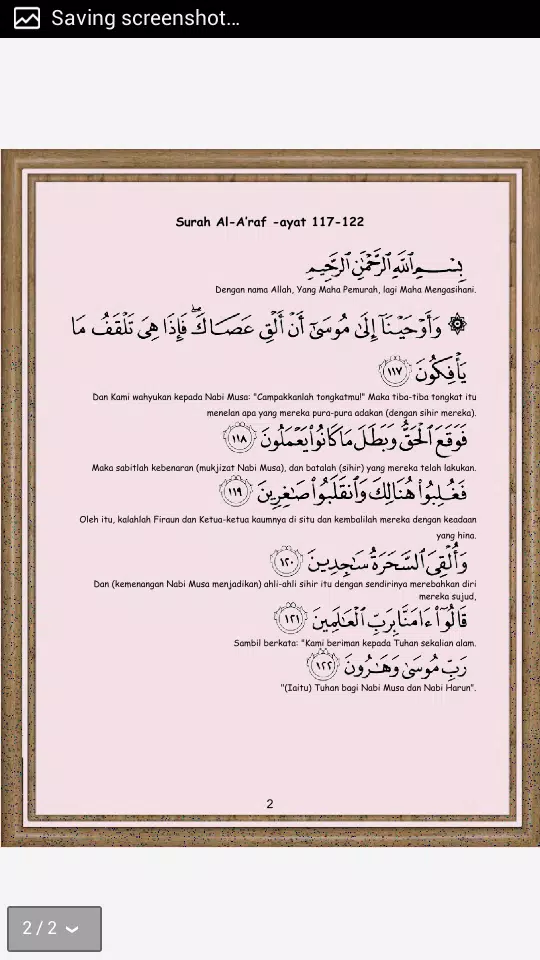 Saving screenshot...
Surah Al-A'raf -ayat 117-122
بِسْمِ ٱللَّهِ ٱلرَّحْمَٰنِ ٱلرَّحِيمِ
Dengan nama Allah, Yang Maha Pemurah, lagi Maha Mengasihani.
۞ وَأَوْحَيْنَآ إِلَىٰ مُوسَىٰٓ أَنْ أَلْقِ عَصَاكَ ۖ فَإِذَا هِىَ تَلْقَفُ مَا
يَأْفِكُونَ ١١٧
Dan Kami wahyukan kepada Nabi Musa: "Campakkanlah tongkatmu!" Maka tiba-tiba tongkat itu
menelan apa yang mereka pura-pura adakan (dengan sihir mereka).
فَوَقَعَ ٱلْحَقُّ وَبَطَلَ مَا كَانُوا۟ يَعْمَلُونَ ١١٨
Maka sabitlah kebenaran (mukjizat Nabi Musa), dan batalah (sihir) yang mereka telah lakukan.
فَغُلِبُوا۟ هُنَالِكَ وَٱنقَلَبُوا۟ صَٰغِرِينَ ١١٩
Oleh itu, kalahlah Firaun dan Ketua-ketua kaumnya di situ dan kembalilah mereka dengan keadaan
yang hina.
وَأُلْقِىَ ٱلسَّحَرَةُ سَٰجِدِينَ ١٢٠
Dan (kemenangan Nabi Musa menjadikan) ahli-ahli sihir itu dengan sendirinya merebahkan diri
mereka sujud,
قَالُوٓا۟ ءَامَنَّا بِرَبِّ ٱلْعَٰلَمِينَ ١٢١
Sambil berkata: "Kami beriman kepada Tuhan sekalian alam.
رَبِّ مُوسَىٰ وَهَٰرُونَ ١٢٢
"(Iaitu) Tuhan bagi Nabi Musa dan Nabi Harun".
2
2 / 2